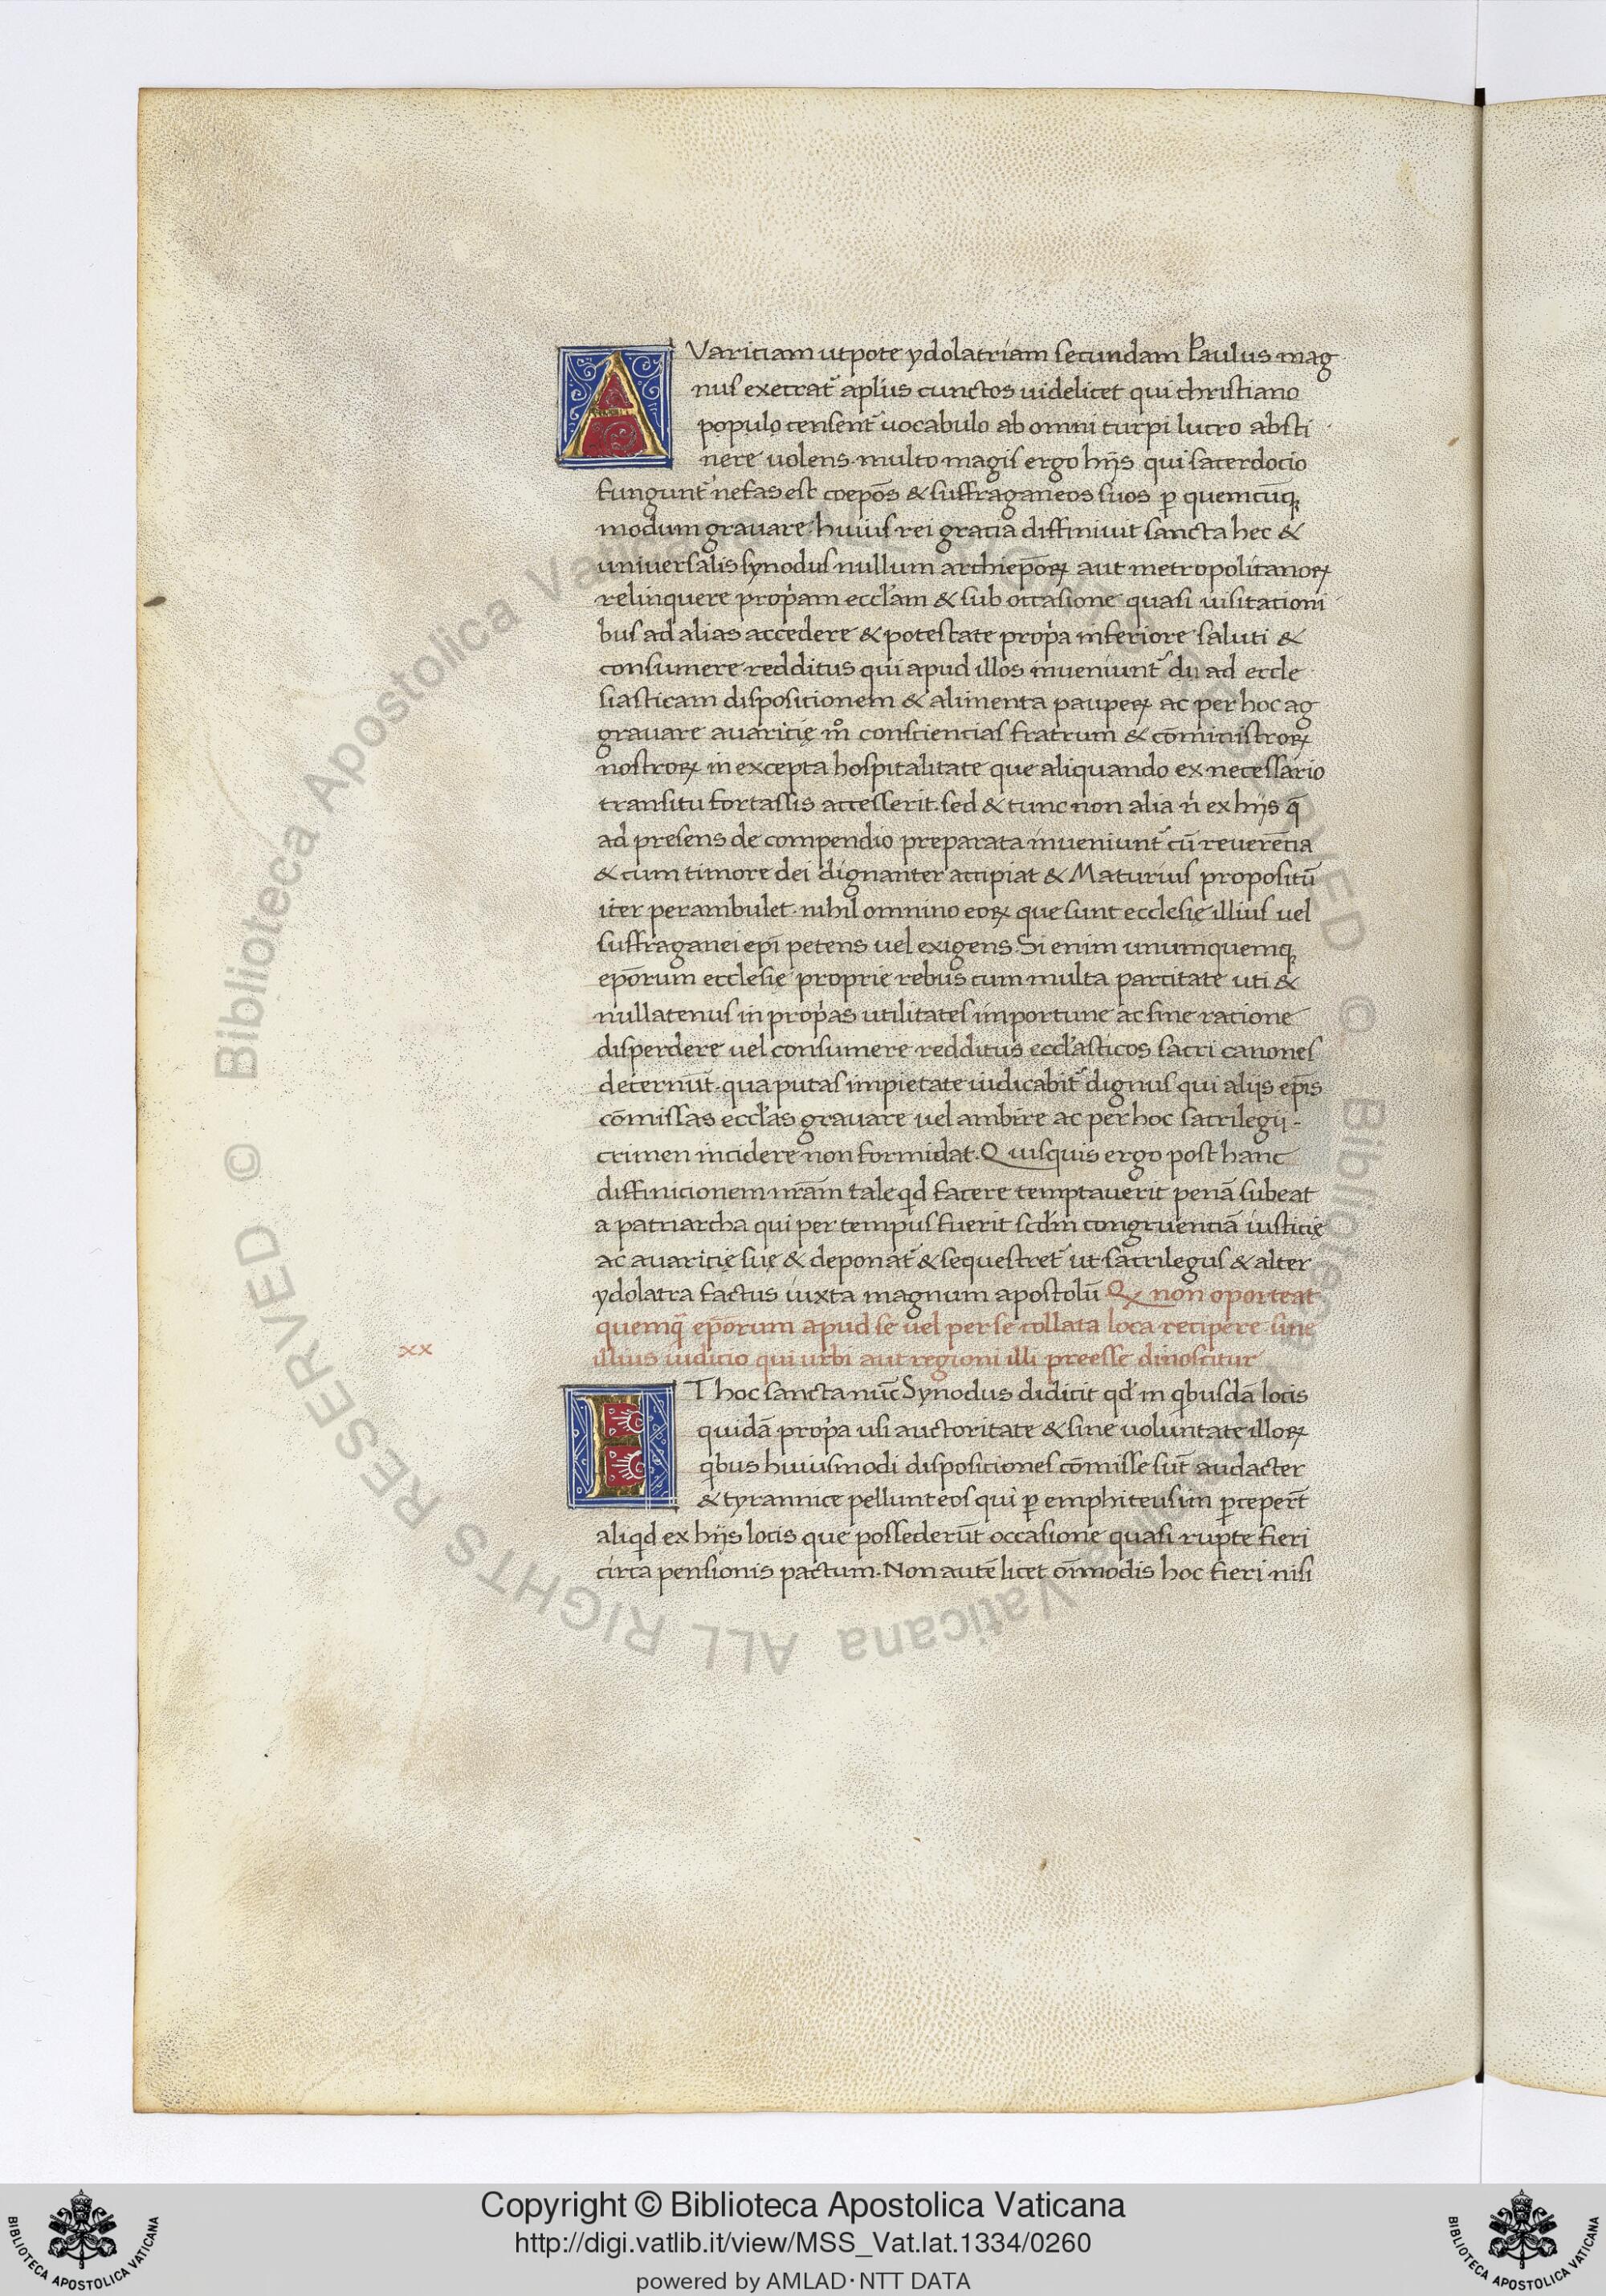 AVaritiam utpote ydolatriam secundam Paulus mag
nus execrat᷑ apl̓us cunctos uidelicet qui christiano
populo censent᷑ uocabulo ab omni turpi lucro absti
nere uolens. multo magis ergo hijs qui sacerdocio
fungunt᷑ nefas est coepōs & suffraganeos suos ꝑ quemcūqꝫ
modum grauare. huius rei gracia diffiniuit sancta hec &
uniuersalis synodus nullum archiepōꝝ aut metropolitanoꝝ
relinquere prop̓am eccl̓am & sub occasione quasi uisitationi
bus ad alias accedere & potestate prop̓a inferiore saluti &
consumere redditus qui apud illos inueniunt᷑ du ad eccle
siasticam dispositionem & alimenta paupeꝝ ac per hoc ag
grauare auaricię m̊ consciencias fratrum & cōministroꝝ
nostroꝝ in excepta hospitalitate que aliquando ex necessario
transitu fortassis accesserit. sed & tunc non alia n̓ ex hijs q̄
ad presens de compendio preparata inueniunt᷑ cū reuerēcia
& cum timore dei dignanter accipiat & Maturius propositū
iter perambulet. nihil omnino eoꝝ que sunt ecclesię illius uel
suffraganei ep̄i petens uel exigens. Si enim unumquemqꝫ
epōrum ecclesię proprie rebus cum multa parcitate uti &
nullatenus in prop̓as utilitates importune ac sine racione
disperdere uel consumere redditus eccl̓asticos sacri canones
decernūt. qua putas impietate iudicabit᷑ dignus qui alijs ep̄is
cōmissas eccl̓as grauare uel ambire ac per hoc sacrilegij -
crimen incidere non formidat. Quisquis ergo post hanc
diffinicionem nr̄am tale qd̓ facere temptauerit penā subeat
a patriarcha qui per tempus fuerit scd̓m congruenciā iusticię
ac auaricię suę & deponat᷑ & sequestret᷑ ut sacrilegus & alter
ydolatra factus iuxta magnum apostolū Qꝫ non oporteat
quemq̄ epōrum apud se uel per se collata loca recipere sine
xx
illius iudicio qui urbi aut regioni illi preesse dinoscitur
ET hoc sancta nūc Synodus didicit qd̓ in qͥbusdā locis
quidā prop̓a usi auctoritate & sine uoluntate illoꝝ
qͥbus huiusmodi dispositiones cōmisse sūt audacter
& tyrannice pellunt eos qui ꝑ emphiteusim ꝑceper̄t
aliqͥd ex hijs locis que possederūt occasione quasi rupte fieri
circa pensionis pactum. Non autē licet om̄modis hoc fieri nisi
Copyright © Biblioteca Apostolica Vaticana
http://digi.vatlib.it/view/MSS_Vat.lat.1334/0260
powered by AMLAD・NTT DATA